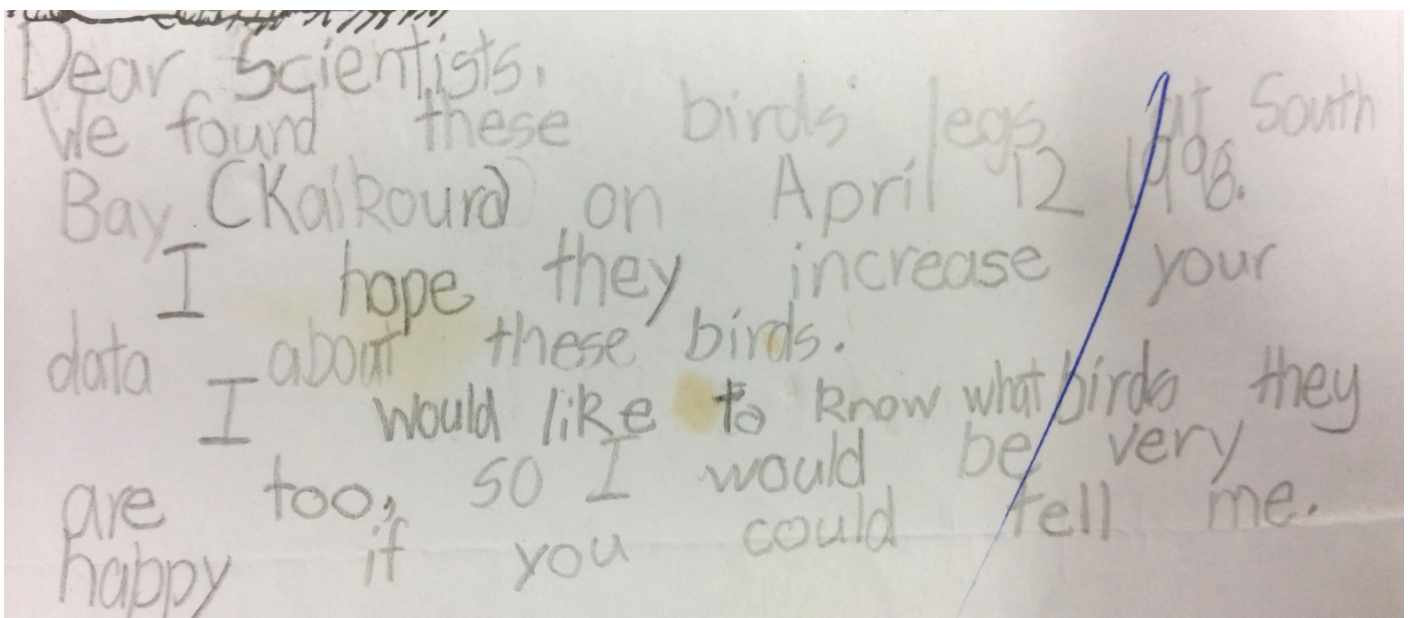 Dear Scientists,
We found these birds' legs at South
Bay (Kaikoura) on April 12 1998.
I hope they increase your
data about these birds.
I would like to know what birds they
are too, so I would be very
happy if you could tell me.